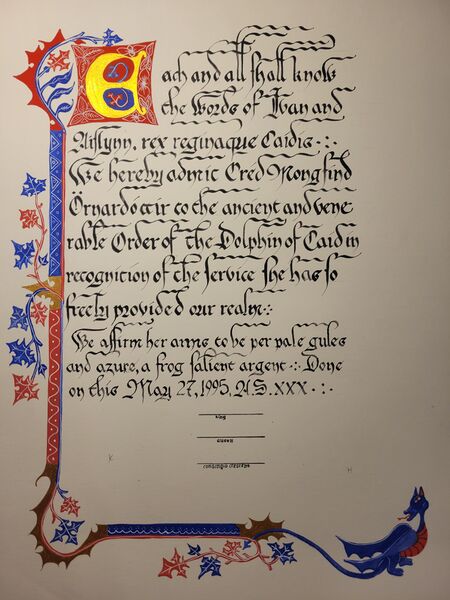 Each and all shall know
the words of Ivan and
Aislynn, rex reginaque Caidis
We hereby admit Cred Mongfind
Örnardóttir to the ancient and vene
rable Order of the Dolphin of Caid in
recognition of the service she has so
freely provided our realm
We affirm her arms to be per pale gules
and azure, a frog salient argent Done
on this May 27, 1995, A.S. XXX
King
Queen
Crescent
K
H